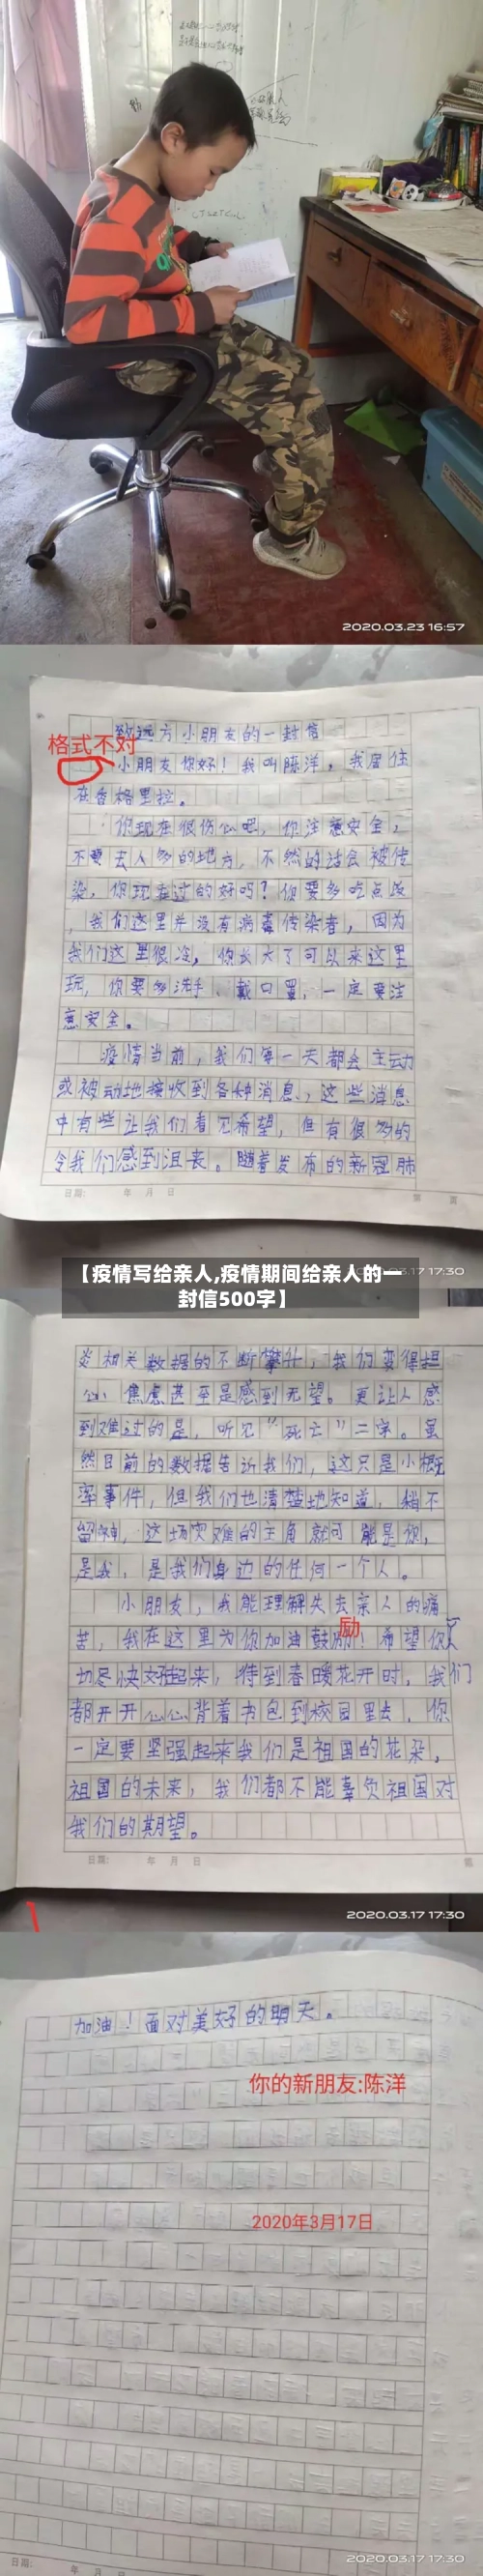 2020.03.23 16:57
致远方小朋友的一封信
格式不对
小朋友你好！我叫陈洋，我居住
在香格里拉。
你现在很伤心吧，你注意安全，
不要去人多的地方，不然的话会被传
染，你现在过的好吗？你要多吃点饭
，我们这里并没有病毒传染者，因为
我们这里很冷，你长大了可以来这里
玩，你要多洗手、戴口罩，一定要注
意安全。
疫情当前，我们每一天都会主动
或被动地接收到各种消息，这些消息
中有些让我们看见希望，但有很多的
令我们感到沮丧。随着发布的新冠肺
日期： 年 月 日
第 页
17:30
【疫情写给亲人,疫情期间给亲人的一
封信500字】
炎相关数据的不断攀升，我们变得担
心、焦虑甚至是感到无望。更让人感
到难过的是，听见“死亡”二字。虽
然目前的数据告诉我们，这只是小概
率事件，但我们也清楚地知道，稍不
留神，这场灾难的主角就可能是你，
是我，是我们身边的任何一个人。
小朋友，我能理解失去亲人的痛
苦，我在这里为你加油鼓励！希望你一
切尽快好起来，待到春暖花开时，我们
都开开心心背着书包到校园里去，你
一定要坚强起来我们是祖国的花朵，
祖国的未来，我们都不能辜负祖国对
我们的期望。
日期： 年 月 日
第
2020.03.17 17:30
加油！面对美好的明天。
你的新朋友:陈洋
2020年3月17日
日期： 年 月 日
2020.03.17 17:30